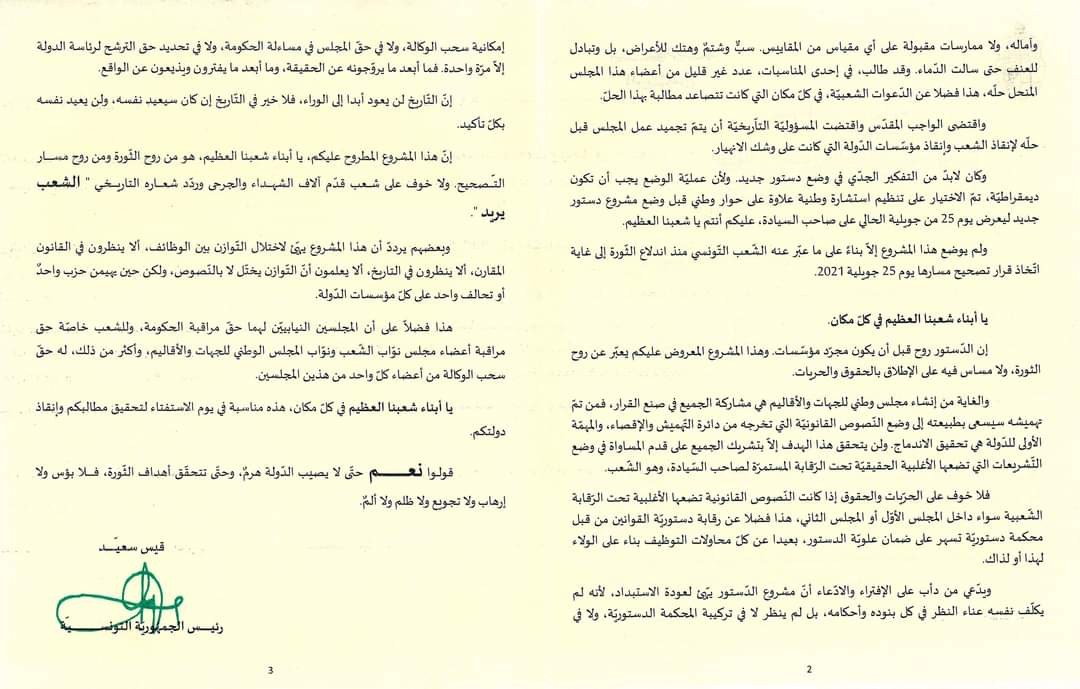 وآماله، ولا ممارسات مقبولة على أي مقياس من المقاييس. سبٌّ وشتمٌ وهتك للأعراض، بل وتبادل
للعنف حتى سالت الدّماء. وقد طالب، في إحدى المناسبات، عدد غير قليل من أعضاء هذا المجلس
المنحل حلّه، هذا فضلا عن الدّعوات الشعبيّة، في كلّ مكان التي كانت تتصاعد مطالبة بهذا الحلّ.
واقتضى الواجب المقدّس واقتضت المسؤوليّة التاّريخيّة أن يتمّ تجميد عمل المجلس قبل
حلّه لإنقاذ الشعب وإنقاذ مؤسّسات الدّولة التي كانت على وشك الانهيار.
وكان لابدّ من التفكير الجدّي في وضع دستور جديد. ولأن عمليّة الوضع يجب أن تكون
ديمقراطيّة، تمّ الاختيار على تنظيم استشارة وطنية علاوة على حوار وطني قبل وضع مشروع دستور
جديد ليعرض يوم 25 من جويلية الحالي على صاحب السيادة، عليكم أنتم يا شعبنا العظيم.
ولم يوضع هذا المشروع إلاّ بناءً على ما عبّر عنه الشّعب التّونسي منذ اندلاع الثّورة إلى غاية
اتّخاذ قرار تصحيح مسارها يوم 25 جويلية 2021.
يا أبناء شعبنا العظيم في كلّ مكان.
إن الدّستور روح قبل أن يكون مجرّد مؤسّسات. وهذا المشروع المعروض عليكم يعبّر عن روح
الثورة، ولا مساس فيه على الإطلاق بالحقوق والحريات.
والغاية من إنشاء مجلس وطني للجهات والأقاليم هي مشاركة الجميع في صنع القرار، فمن تمّ
تهميشه سيسعى بطبيعته إلى وضع النّصوص القانونيّة التي تخرجه من دائرة التّهميش والإقصاء، والمهمّة
الأولى للدّولة هي تحقيق الاندماج. ولن يتحقق هذا الهدف إلاّ بتشريك الجميع على قدم المساواة في وضع
التّشريعات التي تضعها الأغلبية الحقيقيّة تحت الرّقابة المستمرّة لصاحب السّيادة، وهو الشّعب.
فلا خوف على الحرّيات والحقوق إذا كانت النّصوص القانونية تضعها الأغلبية تحت الرّقابة
الشّعبية سواء داخل المجلس الأوّل أو المجلس الثاني، هذا فضلا عن رقابة دستوريّة القوانين من قبل
محكمة دستوريّة تسهر على ضمان علويّة الدستور، بعيدا عن كلّ محاولات التوظيف بناء على الولاء
لهذا أو لذاك.
ويدّعي من دأب على الإفتراء والادّعاء أنّ مشروع الدّستور يهّئ لعودة الاستبداد، لأنه لم
يكلّف نفسه عناء النظر في كل بنوده وأحكامه، بل لم ينظر لا في تركيبة المحكمة الدستوريّة، ولا في
2
إمكانية سحب الوكالة، ولا في حقّ المجلس في مساءلة الحكومة، ولا في تحديد حق الترشح لرئاسة الدولة
إلاّ مرّة واحدة. فما أبعد ما يروّجونه عن الحقيقة، وما أبعد ما يفترون ويذيعون عن الواقع.
إنّ التّاريخ لن يعود أبدا إلى الوراء، فلا خير في التّاريخ إن كان سيعيد نفسه، ولن يعيد نفسه
بكلّ تأكيد.
إنّ هذا المشروع المطروح عليكم، يا أبناء شعبنا العظيم، هو من روح الثّورة ومن روح مسار
التّصحيح. ولا خوف على شعب قدّم آلاف الشهداء والجرحى وردّد شعاره التاريخي " الشعب
يريد ".
وبعضهم يرددّ أن هذا المشروع يهّئ لاختلال التّوازن بين الوظائف، ألا ينظرون في القانون
المقارن، ألا ينظرون في التاريخ، ألا يعلمون أنّ التّوازن يختلّ لا بالنّصوص، ولكن حين يهيمن حزب واحدٌ
أو تحالف واحد على كلّ مؤسسات الدّولة.
هذا فضلاً على أن المجلسين النيابييّن لهما حقّ مراقبة الحكومة، وللشعب خاصّة حق
مراقبة أعضاء مجلس نوّاب الشّعب ونوّاب المجلس الوطني للجهات والأقاليم، وأكثر من ذلك، له حقّ
سحب الوكالة من أعضاء كلّ واحد من هذين المجلسين.
يا أبناء شعبنا العظيم في كلّ مكان، هذه مناسبة في يوم الاستفتاء لتحقيق مطالبكم وإنقاذ
دولتكم.
قولوا نعم حتّى لا يصيب الدّولة هرمٌ، وحتّى تتحقّق أهداف الثّورة، فلا بؤس ولا
إرهاب ولا تجويع ولا ظلم ولا ألمٌ.
قيس سعيّد
رئيس الجمهوريّة التونسيّة
3